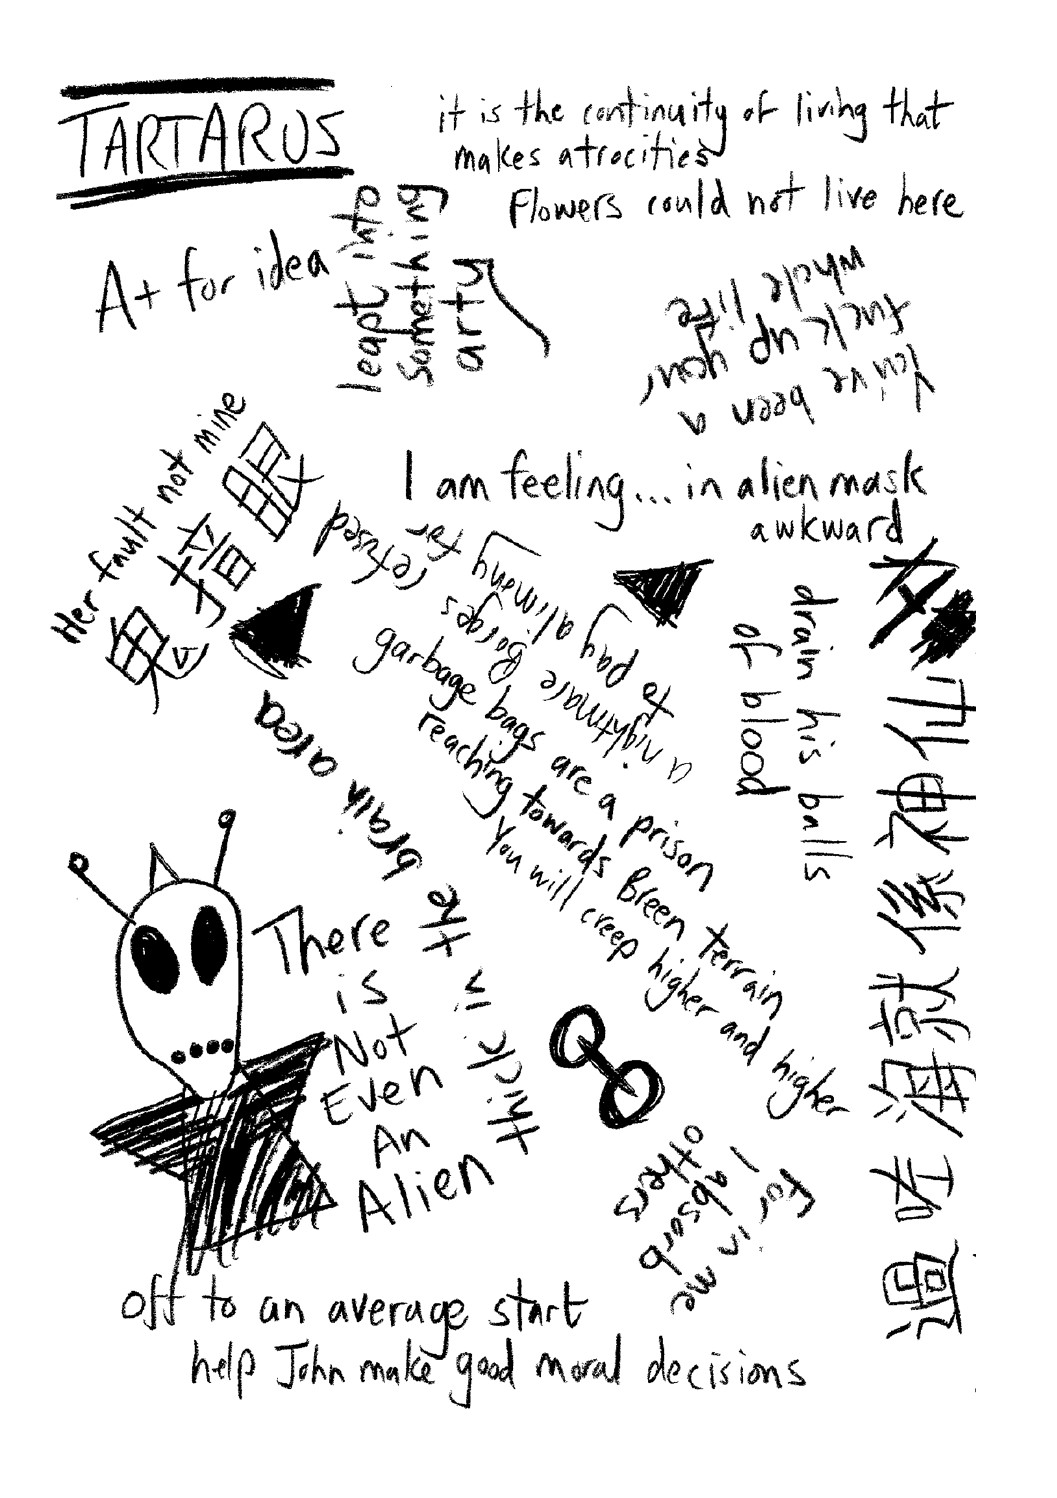 TARTARUS
it is the continuity of living that
makes atrocities
Flowers could not live here
A+ for idea
leapt into
something
arty
You've been a
fuck up your
whole life
Her fault not mine
I am feeling... in alien mask
awkward
refused
to pay alimony for
a nightmare Borges
garbage bags are a prison
reaching towards Breen terrain
You will creep higher and higher
drain his balls
of blood
仆
神
係
就
海
咗
過
thick in the brain area
There
is
Not
Even
An
Alien
for in me
I absorb
others
off to an average start
help John make good moral decisions